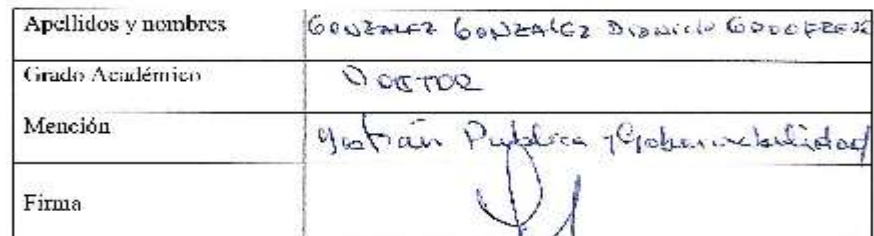 Apellidos y nombres GONZALEZ GONZALEZ DIONICIO GODOFREDO
Grado Académico DOCTOR
Mención Gestión Publica y Gobernabilidad
Firma